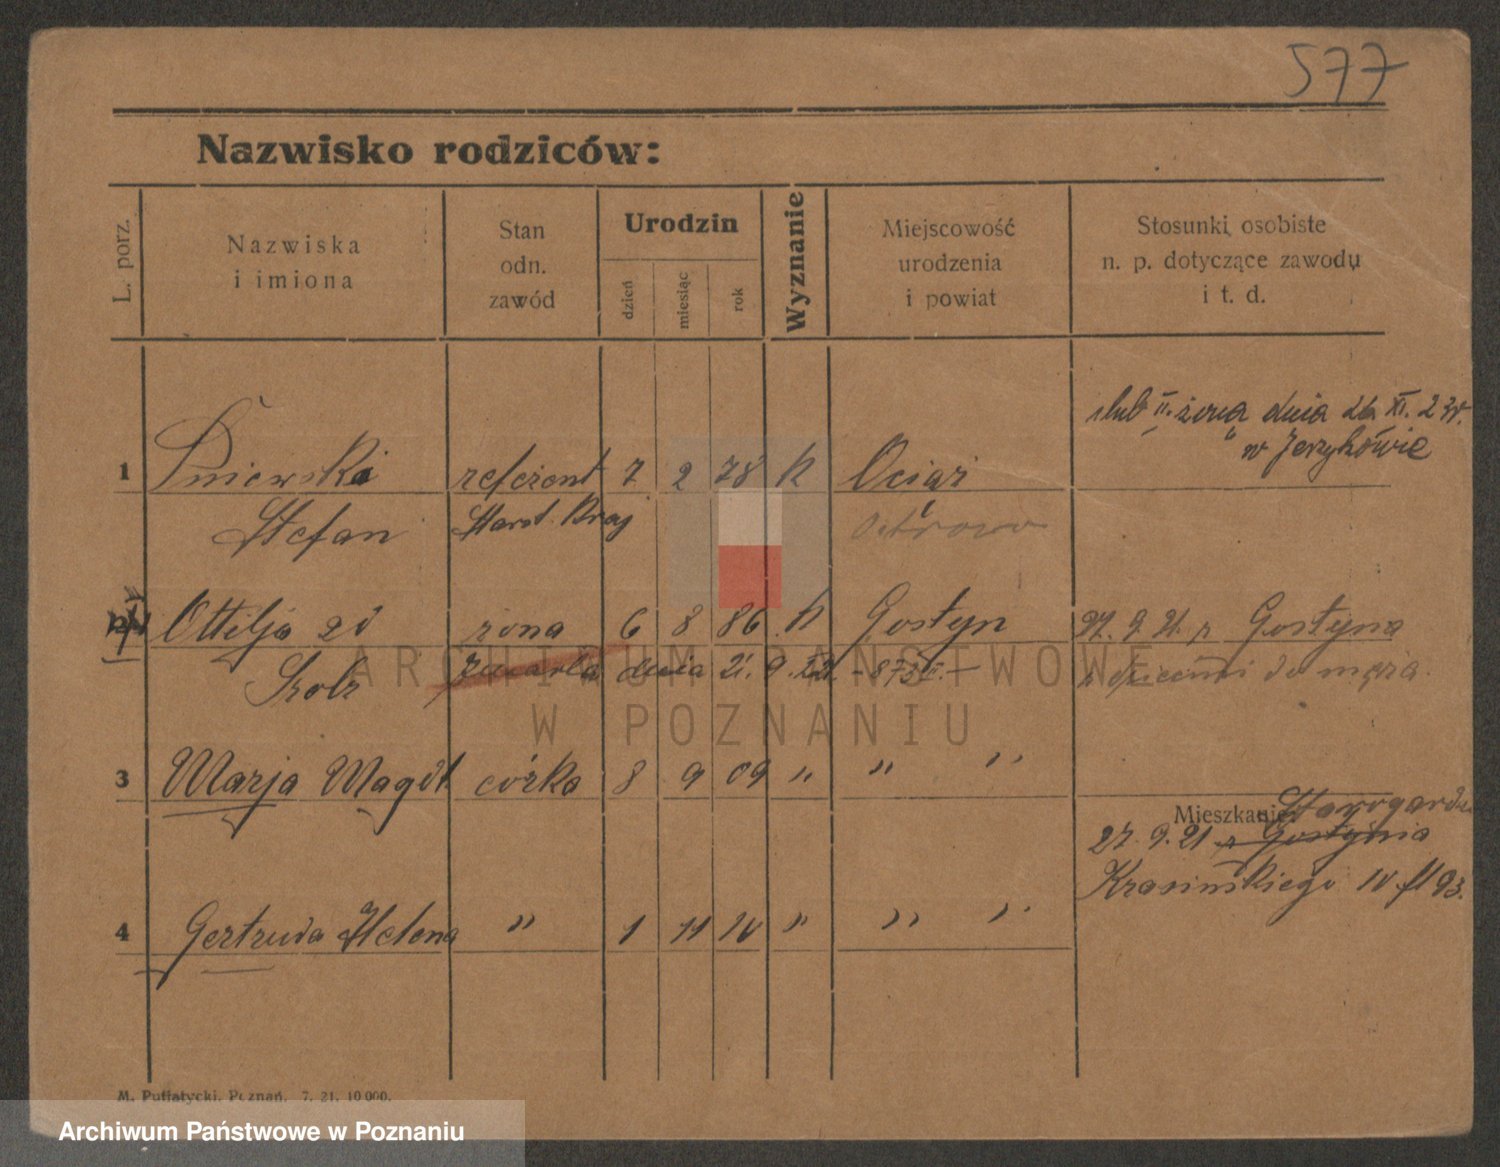 577
Nazwisko rodziców:
L. porz.
Nazwiska
i imiona
Stan
odn.
zawód
Urodzin
dzień
miesiąc
rok
Wyznanie
Miejscowość
urodzenia
i powiat
Stosunki osobiste
n. p. dotyczące zawodu
i t. d.
ślub II. żona dnia 26 XI. 23r.
w Jerzykowie
1 Śniewski referent 7 2 78 k Ociąż
Stefan Starost. Kraj Ostrowo
Ottilja zd żona 6 8 86 k Gostyn 27. 9. 21. z Gostyna
Szolz zmarła dnia 21. 9. 22. z dziećmi do męża.
3 Marja Magdl córka 8 9 09 " " "
Mieszkanie: Starogardu
27. 9. 21 z Gostynia
Krasińskiego 10 93.
4 Gertruda Helena " 1 11 10 " " "
M. Putiatycki, Poznań. 7. 21. 10000.
ARCHIWUM PAŃSTWOWE
W POZNANIU
Archiwum Państwowe w Poznaniu